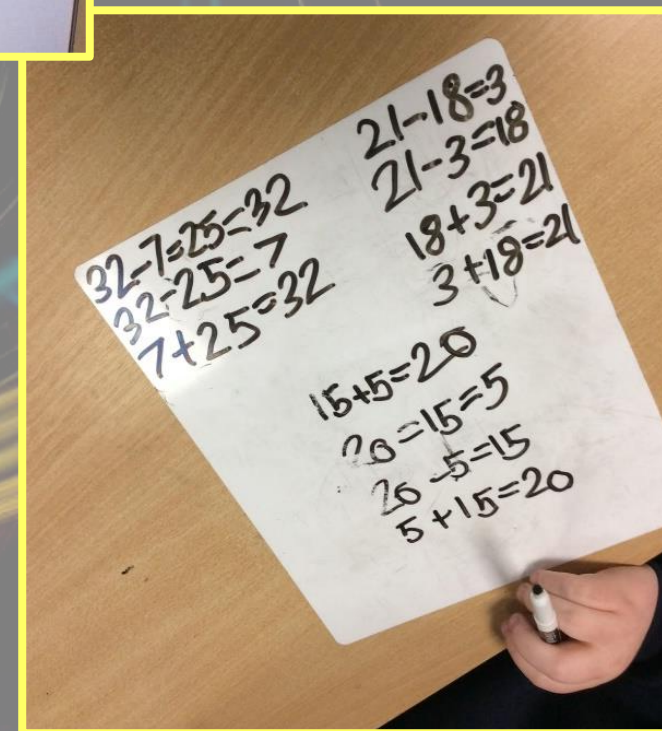 32-7=25=32
32-25=7
7+25=32
21-18=3
21-3=18
18+3=21
3+18=21
15+5=20
20=15=5
20-5=15
5+15=20